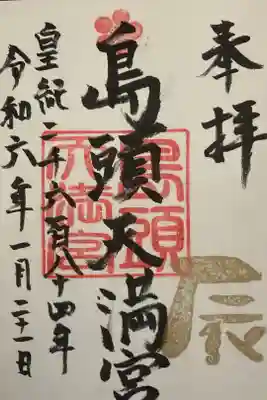 奉拝
辰
島頭天満宮
島頭
天満宮
皇紀二千六百八十四年
令和六年一月二十一日